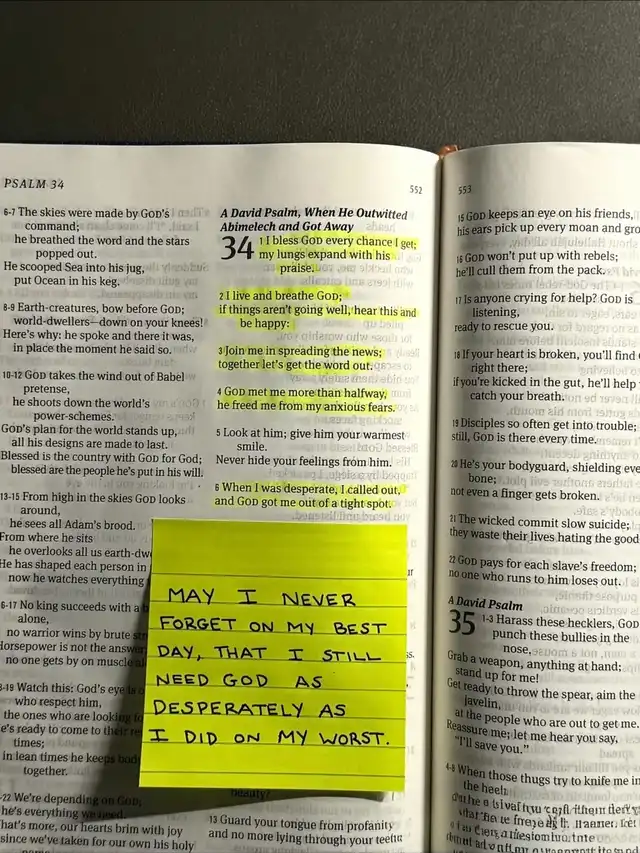 PSALM 34
552
6-7 The skies were made by GOD's
command;
he breathed the word and the stars
popped out.
He scooped Sea into his jug,
put Ocean in his keg.
8-9 Earth-creatures, bow before GOD;
world-dwellers—down on your knees!
Here's why: he spoke and there it was,
in place the moment he said so.
10-12 GOD takes the wind out of Babel
pretense,
he shoots down the world's
power-schemes.
GOD's plan for the world stands up,
all his designs are made to last.
Blessed is the country with GOD for God;
blessed are the people he's put in his will.
13-15 From high in the skies GOD looks
around,
he sees all Adam's brood.
From where he sits
he overlooks all us earth-
He has shaped each person in
now he watches everything
6-17 No king succeeds with a
alone,
no warrior wins by brute
Horsepower is not the
no one gets by on muscle
8-19 Watch this: God's eye is
who respect him,
the ones who are looking
he's ready to come to their
times;
in lean times he keeps
together.
-22 We're depending on GOD;
he's everything we need.
What's more, our hearts brim with joy
since we've taken for our own his holy
A David Psalm, When He Outwitted
Abimelech and Got Away
34 1 I bless GOD every chance I get;
my lungs expand with his
praise.
2 I live and breathe GOD;
if things aren't going well, hear this and
be happy:
3 Join me in spreading the news;
together let's get the word out.
4 GOD met me more than halfway,
he freed me from my anxious fears.
5 Look at him; give him your warmest
smile.
Never hide your feelings from him.
6 When I was desperate, I called out,
and GOD got me out of a tight spot.
MAY I NEVER
FORGET ON MY BEST
DAY, THAT I STILL
NEED GOD AS
DESPERATELY AS
I DID ON MY WORST.
beauty?
13 Guard your tongue from profanity
and no more lying through your teeth
553
15 GOD keeps an eye on his friends,
his ears pick up every moan and
16 GOD won't put up with rebels;
he'll cull them from the pack.
17 Is anyone crying for help? GOD is
listening,
ready to rescue you.
18 If your heart is broken, you'll find
right there;
if you're kicked in the gut, he'll help
catch your breath.
19 Disciples so often get into trouble;
still, GOD is there every time.
20 He's your bodyguard, shielding
bone;
not even a finger gets broken.
21 The wicked commit slow suicide;
they waste their lives hating the good
22 GOD pays for each slave's freedom;
no one who runs to him loses out.
A David Psalm
35 1-3 Harass these hecklers, GOD
punch these bullies in the
nose.
Grab a weapon, anything at hand;
stand up for me!
Get ready to throw the spear, aim the
javelin,
at the people who are out to get me.
Reassure me; let me hear you say,
"I'll save you."
4-8 When those thugs try to knife me in
the